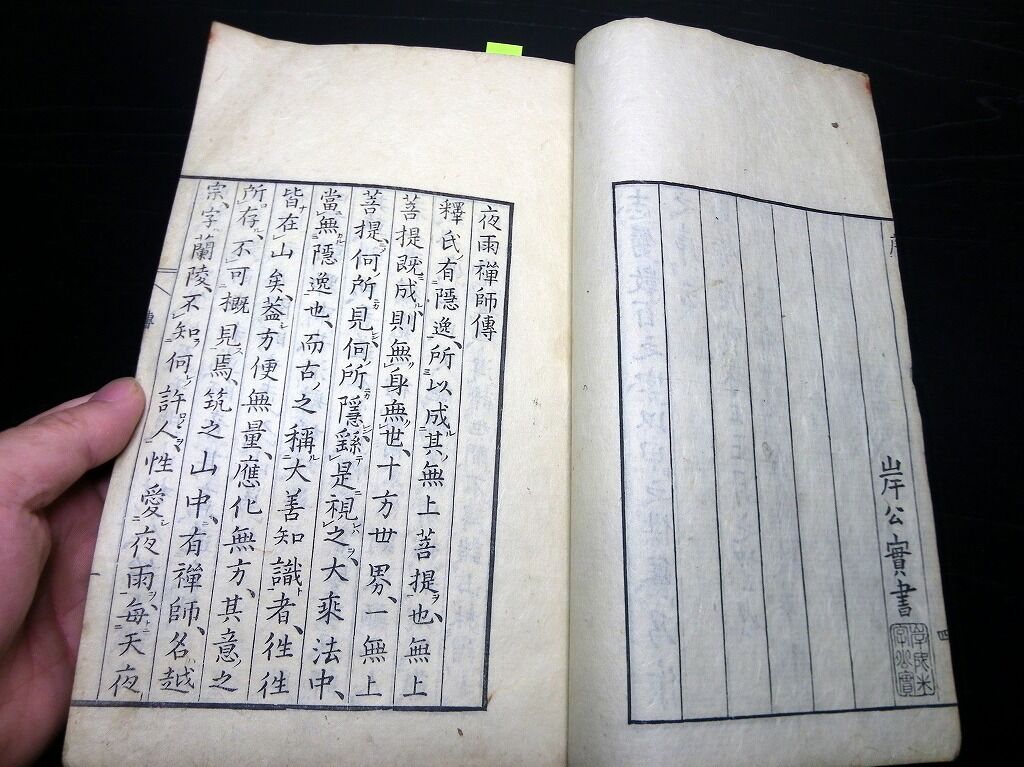 岸公實書
四
夜雨禪師傳
釋氏有隱逸、所以成其無上菩提也、無上
菩提既成、則無身無世、十方世界、一無上
菩提、何所見何所隱、繇是視之、大乘法中、
當無隱逸也、而古之稱大善知識者、徃徃
皆在山矣、蓋方便無量、應化無方、其意之
所存、不可概見焉、筑之山中、有禪師、名越
宗、字蘭陵、不知何許人、性愛夜雨、每天夜